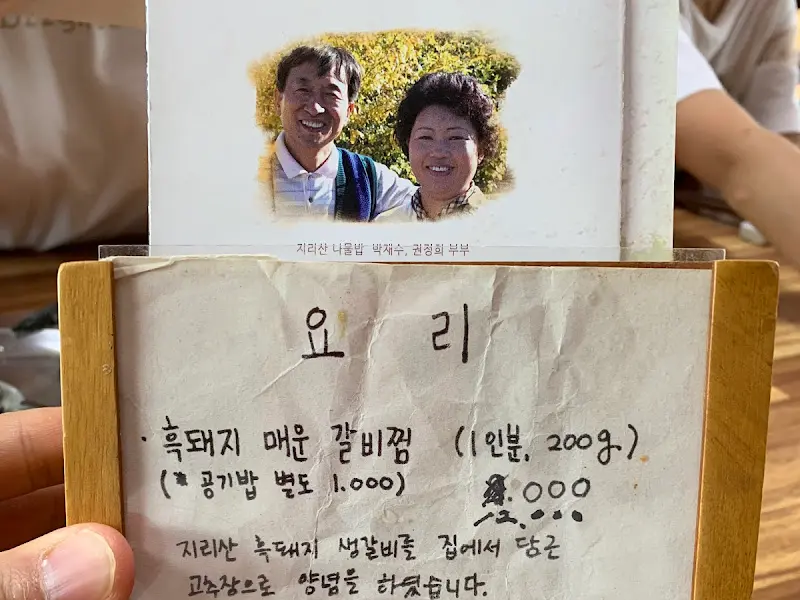 지리산 나물밥 박재수, 권정희 부부
요 리
· 흑돼지 매운 갈비찜 (1인분, 200g)
(* 공기밥 별도 1.000) .000
12.000
지리산 흑돼지 생갈비를 집에서 담근
고추장으로 양념을 하였습니다.